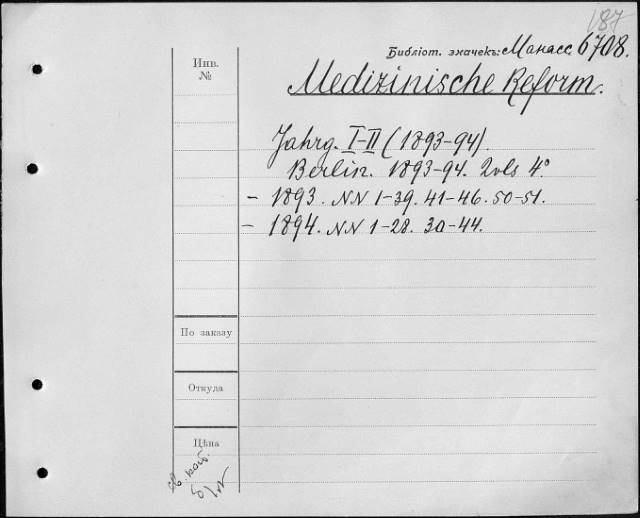 187
Библіот. значекъ: Манасс. 6708.
Инв.
№
Medizinische Reform.
Jahrg. I-II (1893-94).
Berlin. 1893-94. 2 vls 4°
- 1893. NN 1-39. 41-46. 50-51.
- 1894. NN 1-28. 30-44.
По заказу
Откуда
Цѣна